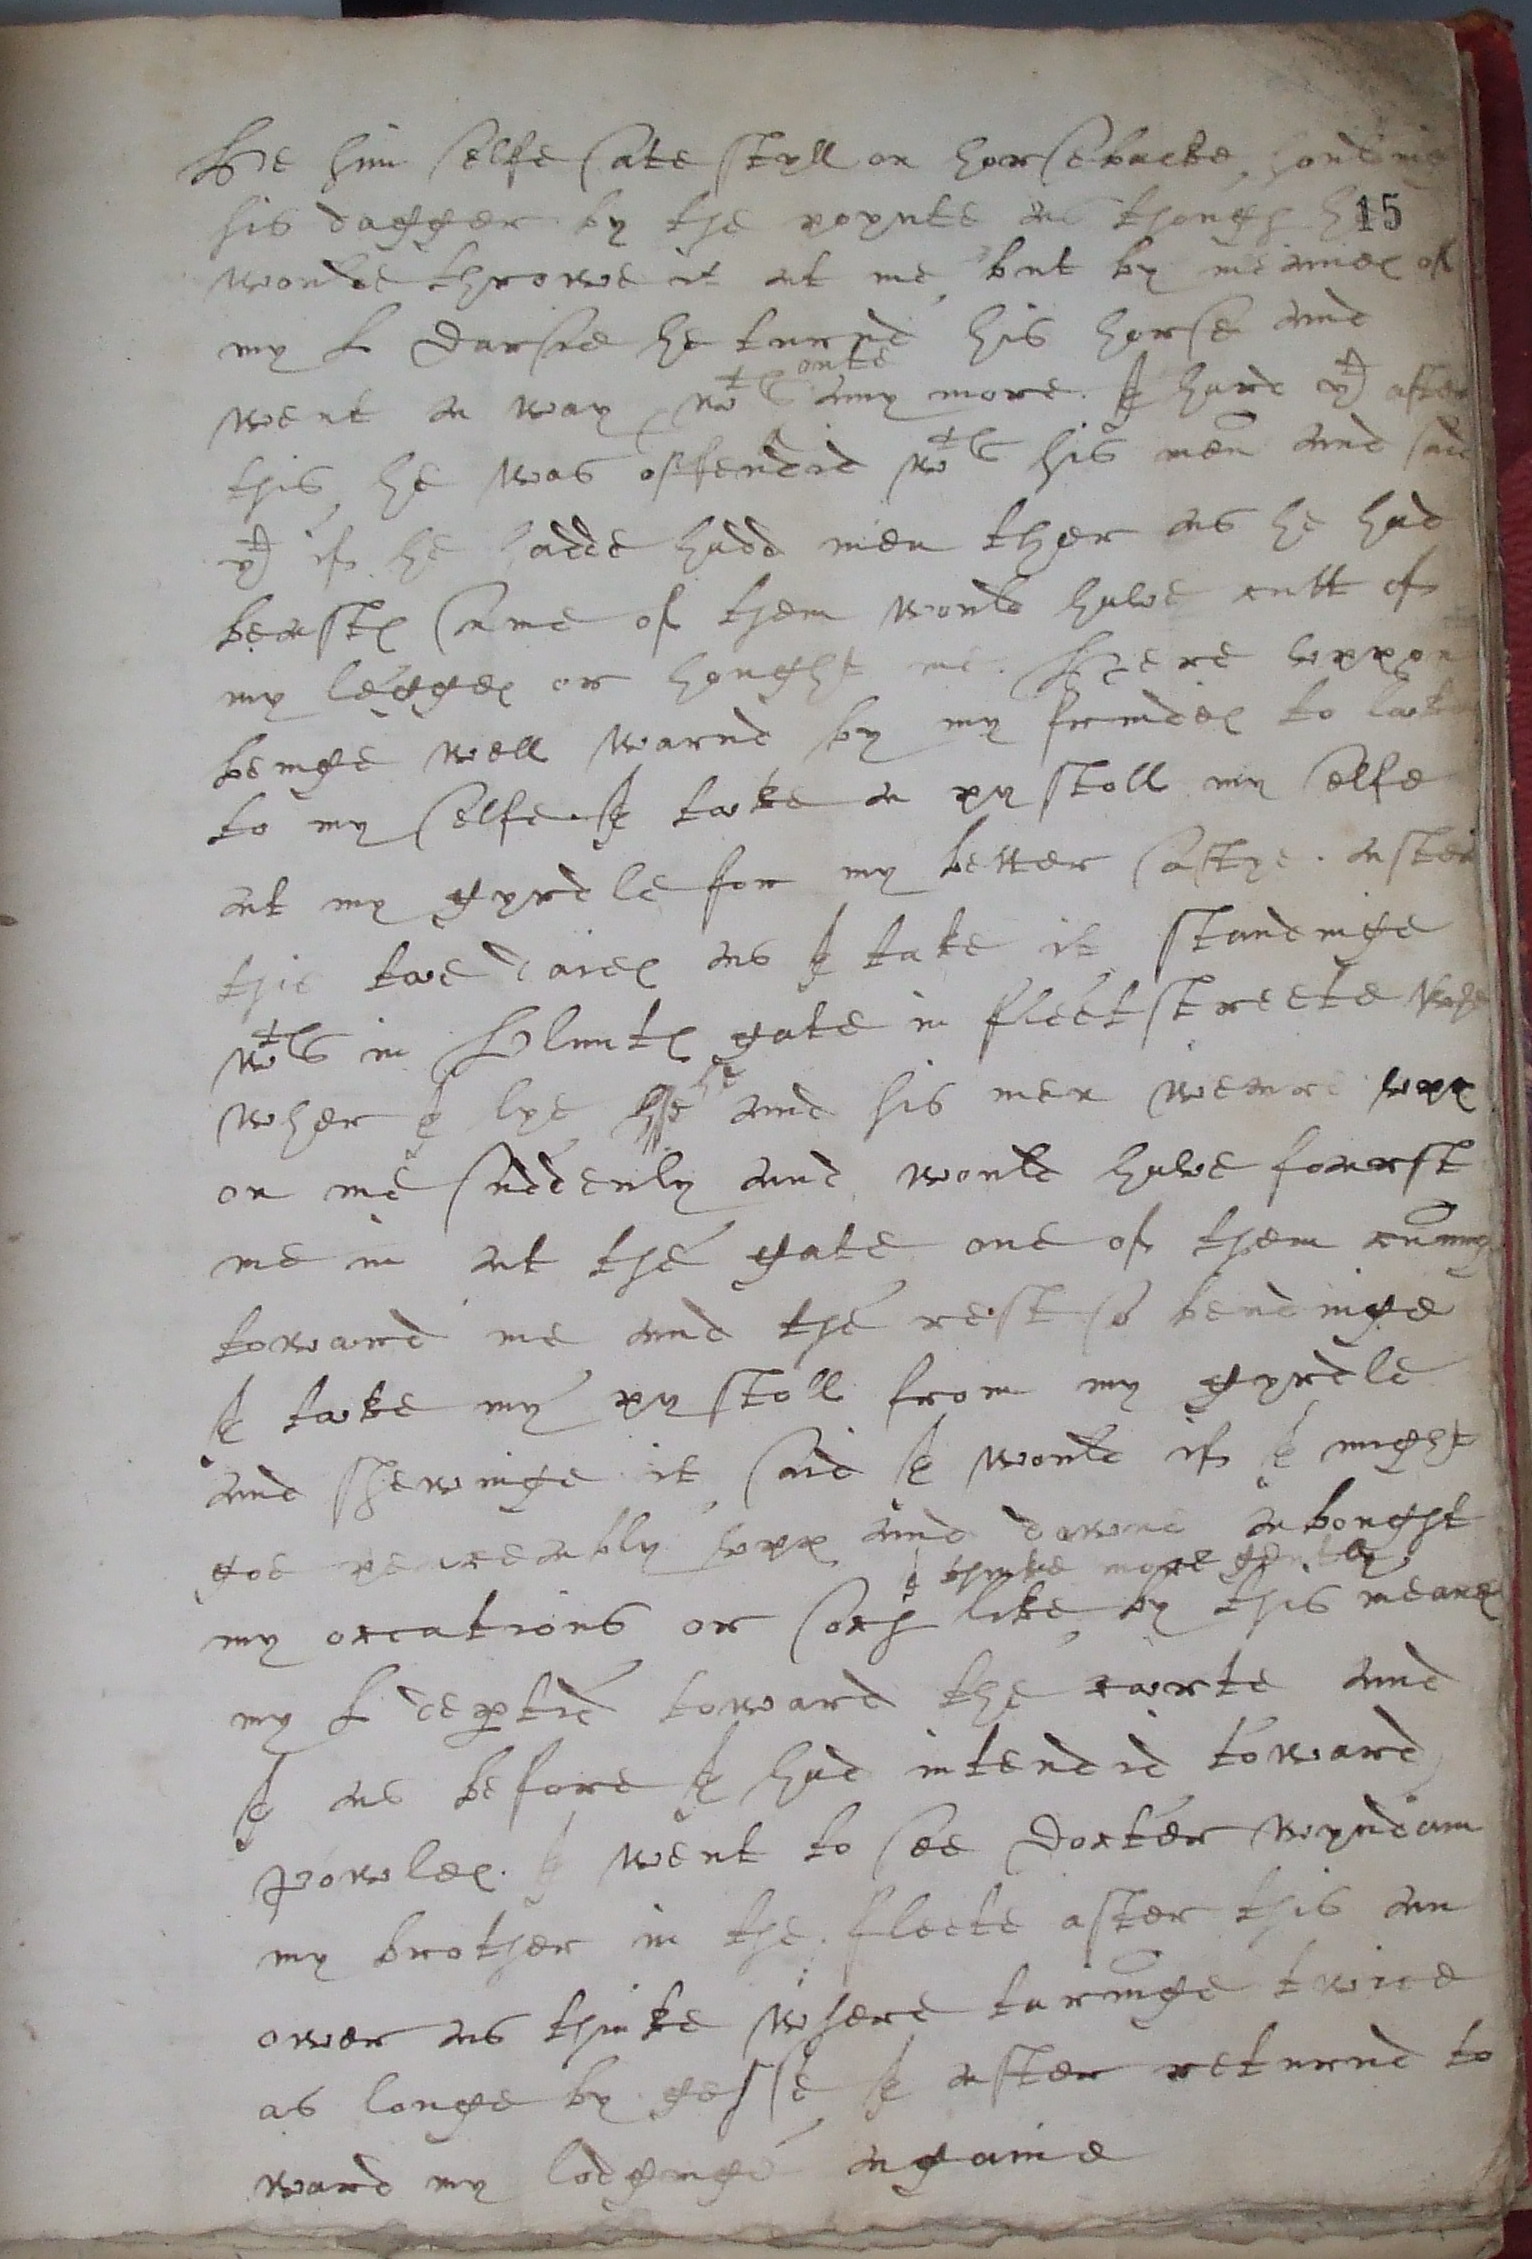 He him selfe sate styll on horsebacke houldinge
his dagger by the poynte as though he
15
woulde throwe it at me but by meanes of
my L Darsie he turnd his horse and
went a way wth oute any more. I hard yt after
this he was offendid wth his men and said
yt if he hadde hadd men ther as he had
beastes some of them would have cutt of
my legges or hought me. Here uppon
beinge well warnd by my frindes to looke
to my selfe I tooke a pystoll my selfe
at my gyrdle for my better saftye. after
this two daies as I take it standinge
wth in Bluntes gate in fleetstreete
wher I lye he and his men weare upp
on me suddenly and would have fourst
me in at the gate one of them cuming
toward me and the rest so bendinge
I tooke my pystoll from my gyrdle
and shewinge it said I would if I might
goe peaceeably upp and downe abought
my occations or soch like by this meanes
I thinke more gently
my L deptid toward the courte and
I as before I had intendid toward
powles. I went to see Docter Wyndam
my brother in the fleete after this an
ower as thinke where taringe twice
as longe by gesse I after returnd to
ward my lodginge againe